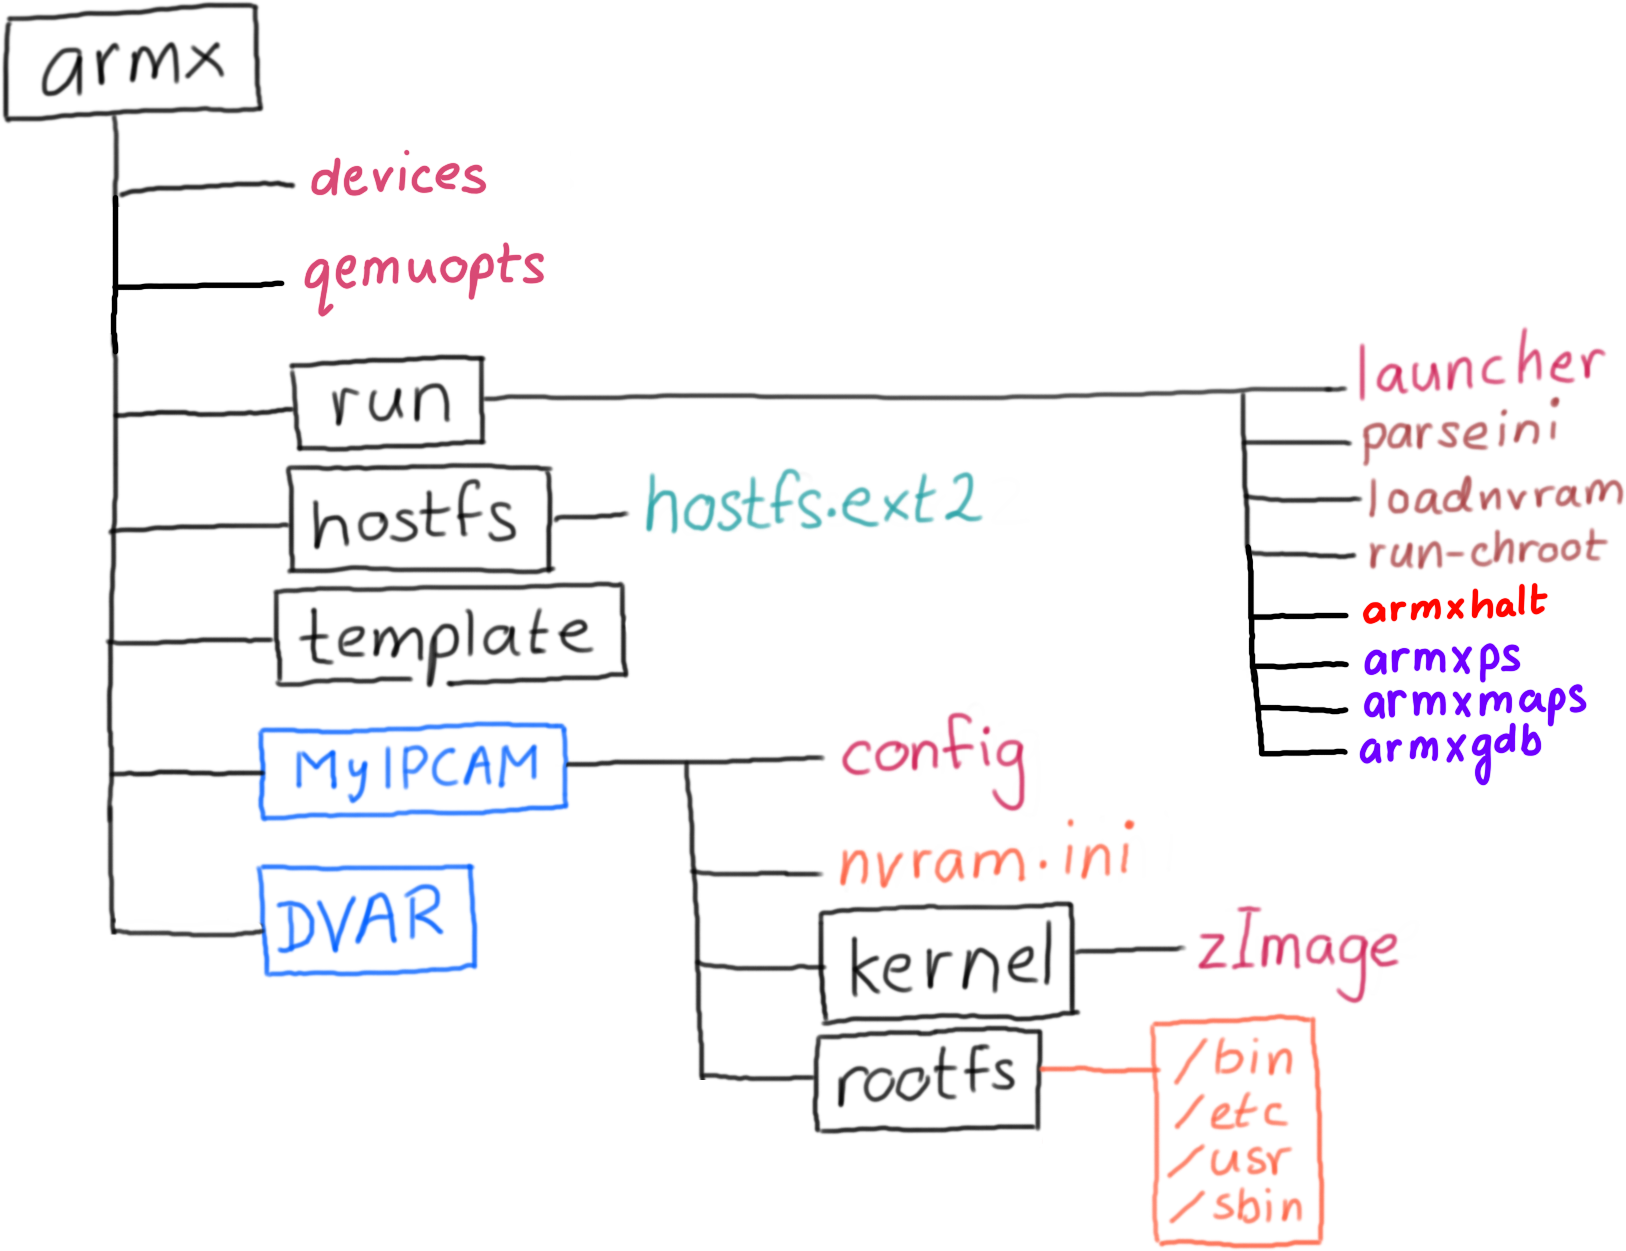 armx
devices
qemuopts
run
launcher
parseini
loadnvram
run-chroot
armxhalt
armxps
armxmaps
armxgdb
hostfs
hostfs.ext2
template
MyIPCAM
config
nvram.ini
kernel
zImage
rootfs
/bin
/etc
/usr
/sbin
DVAR